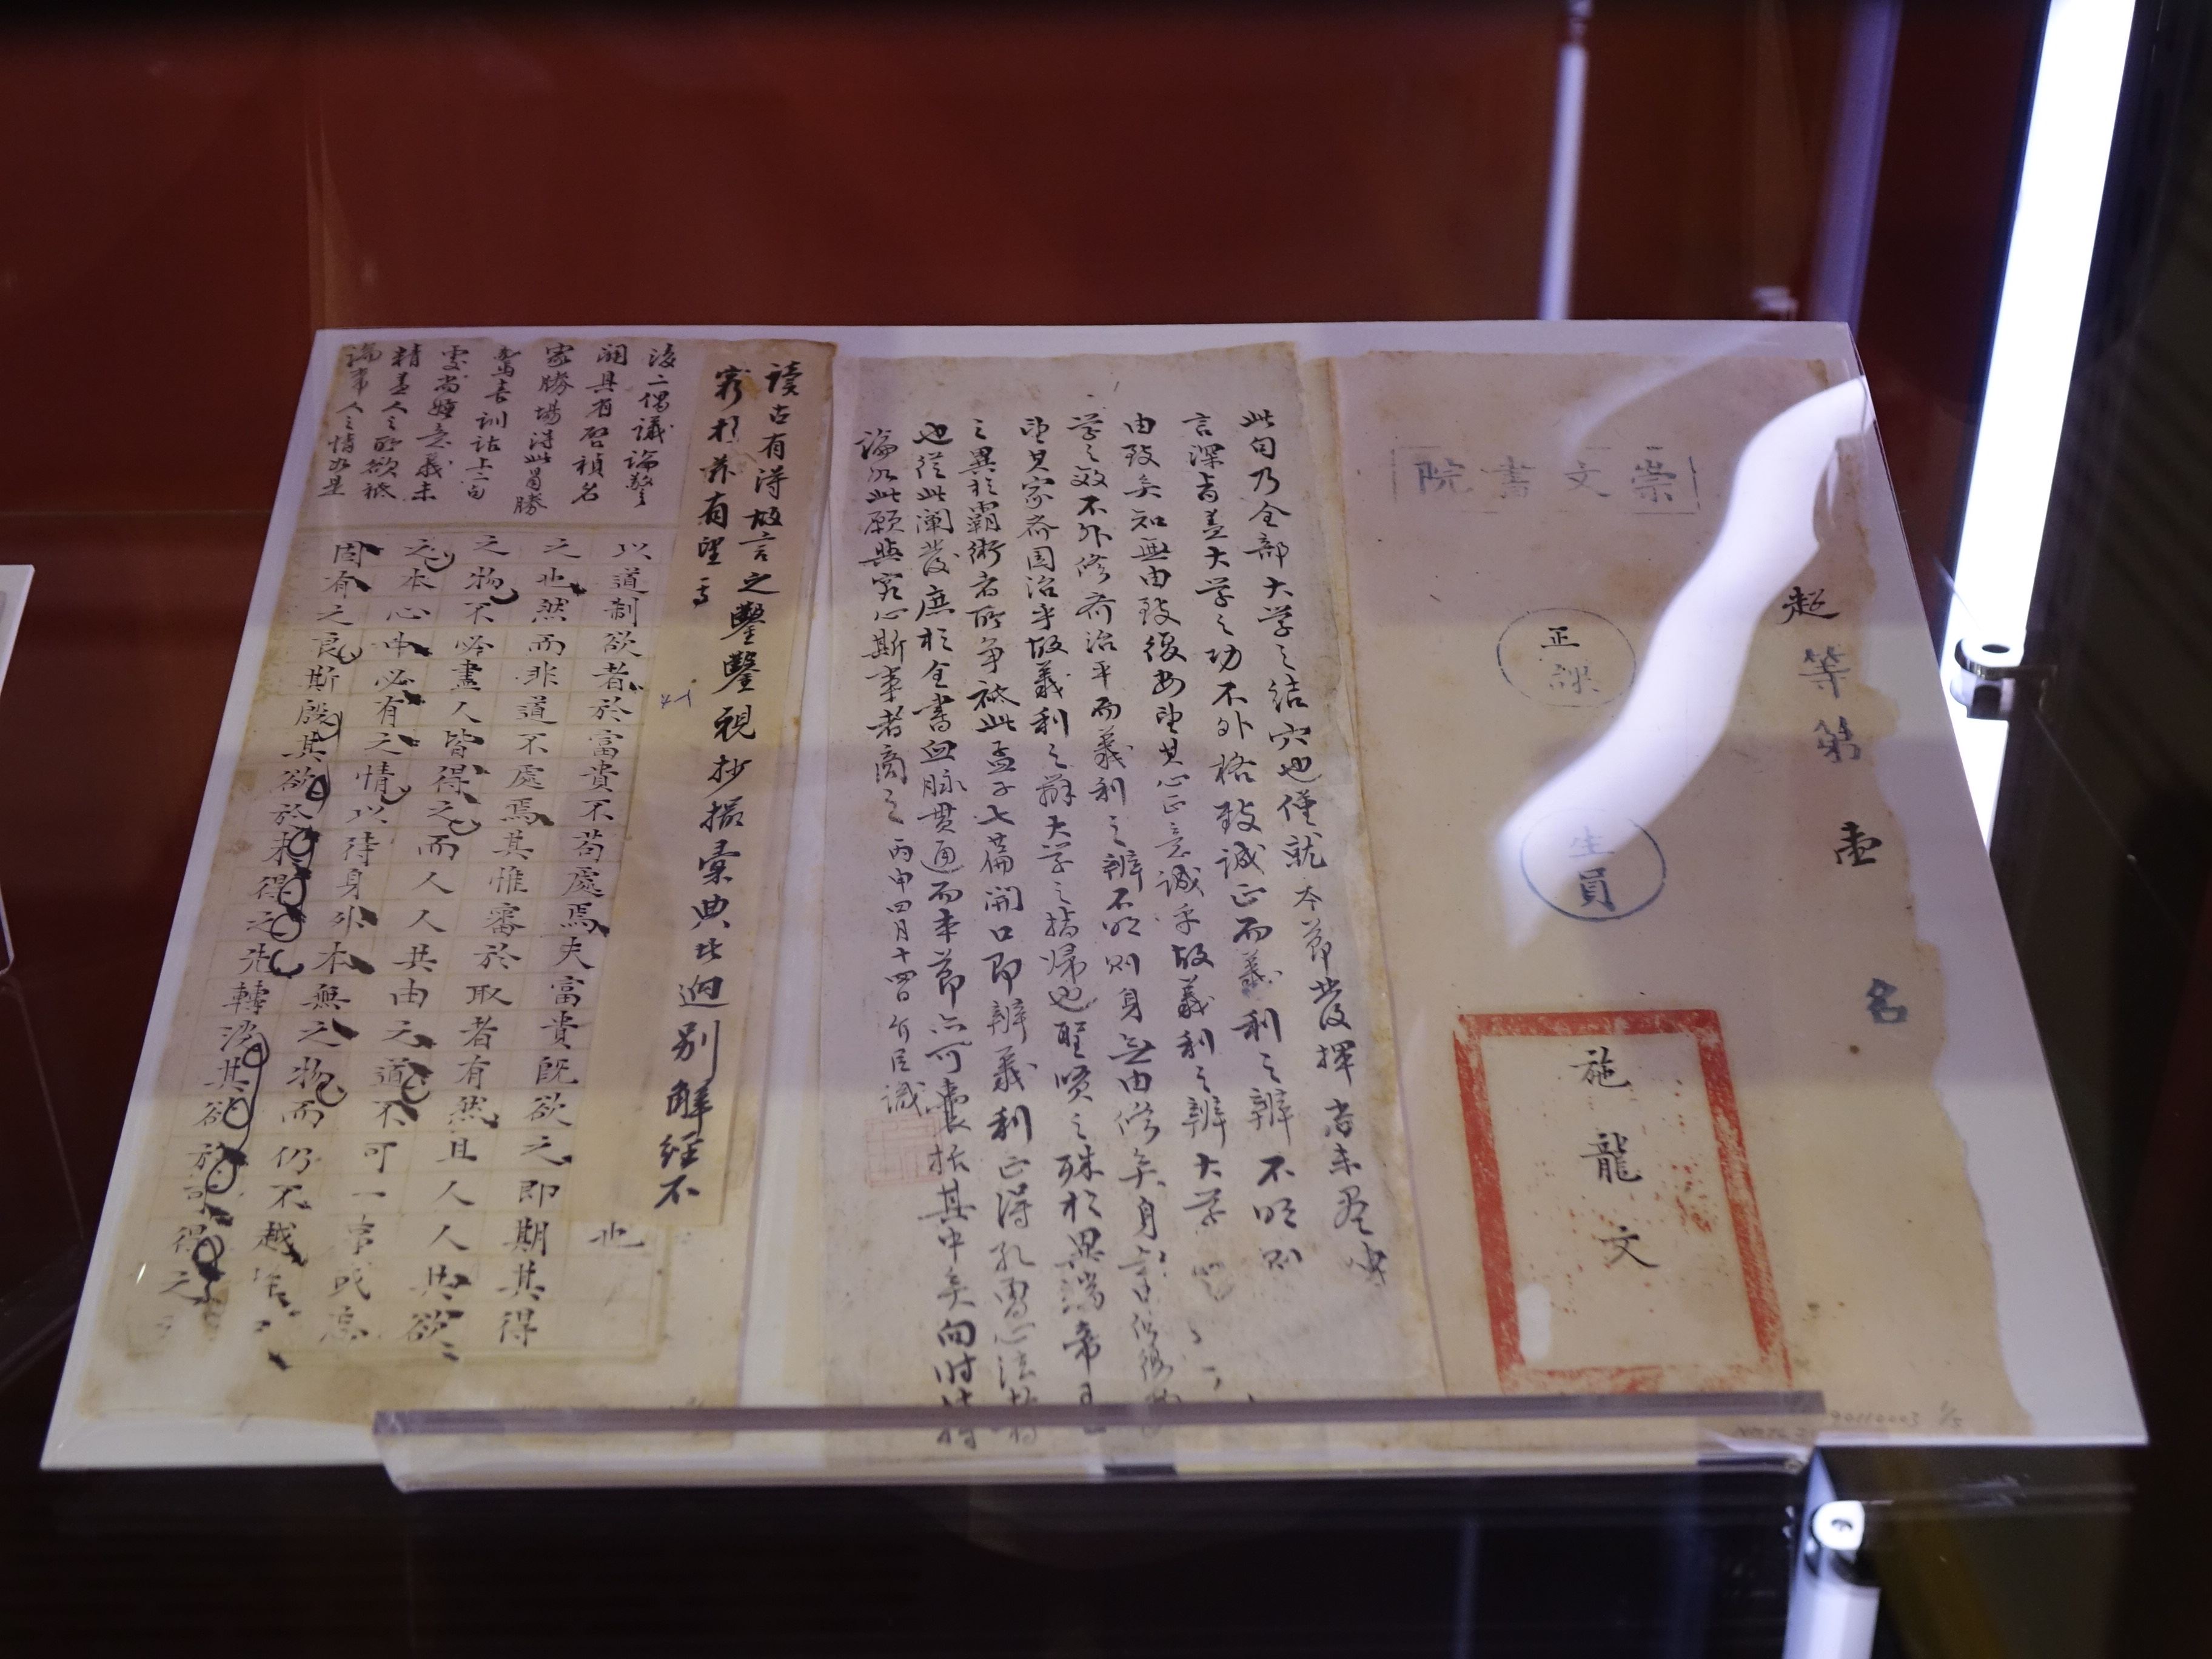 超等第壹名
崇文書院
正課
生員
施龍文
此句乃全部大学之结穴也僅就本節發揮尚未尽
言深者盖大学之功不外格致诚正而義利之辨不明则
由致矣知無由致後安望其心正意诚乎故義利之辨大学
学之效不外修齐治平而義利之辨不明则身無由修矣身
望其家齐国治乎故義利之辨大学之指归也聖贤之殊於異端帝王
之異於霸術者所争衹此孟子七篇開口即辨義利正得孔曾心法
也從此闡發庶於全書血脉贯通而本節亦可囊括其中矣向时
論如此願與究心斯事者商之 丙申四月十四日
讀古有得故言之鑿鑿視抄撮彙典比迥别解经不
窮於苏有望焉
後二偶議論警
闢具有启祯名
家勝場浔此冒勝
尚嫌意義未
精盖人之所欲衹
以道制欲者於富貴不苟處焉夫富貴既欲之即期其得
之也然而非道不處焉其惟審於取者有然且人人共欲
之物不必盡人皆得之而人人共由之道不可一事或忘
之本心中必有之情以待身外本無之物而仍不越
固有之良斯殷其欲於未得之先轉淡其欲於
也